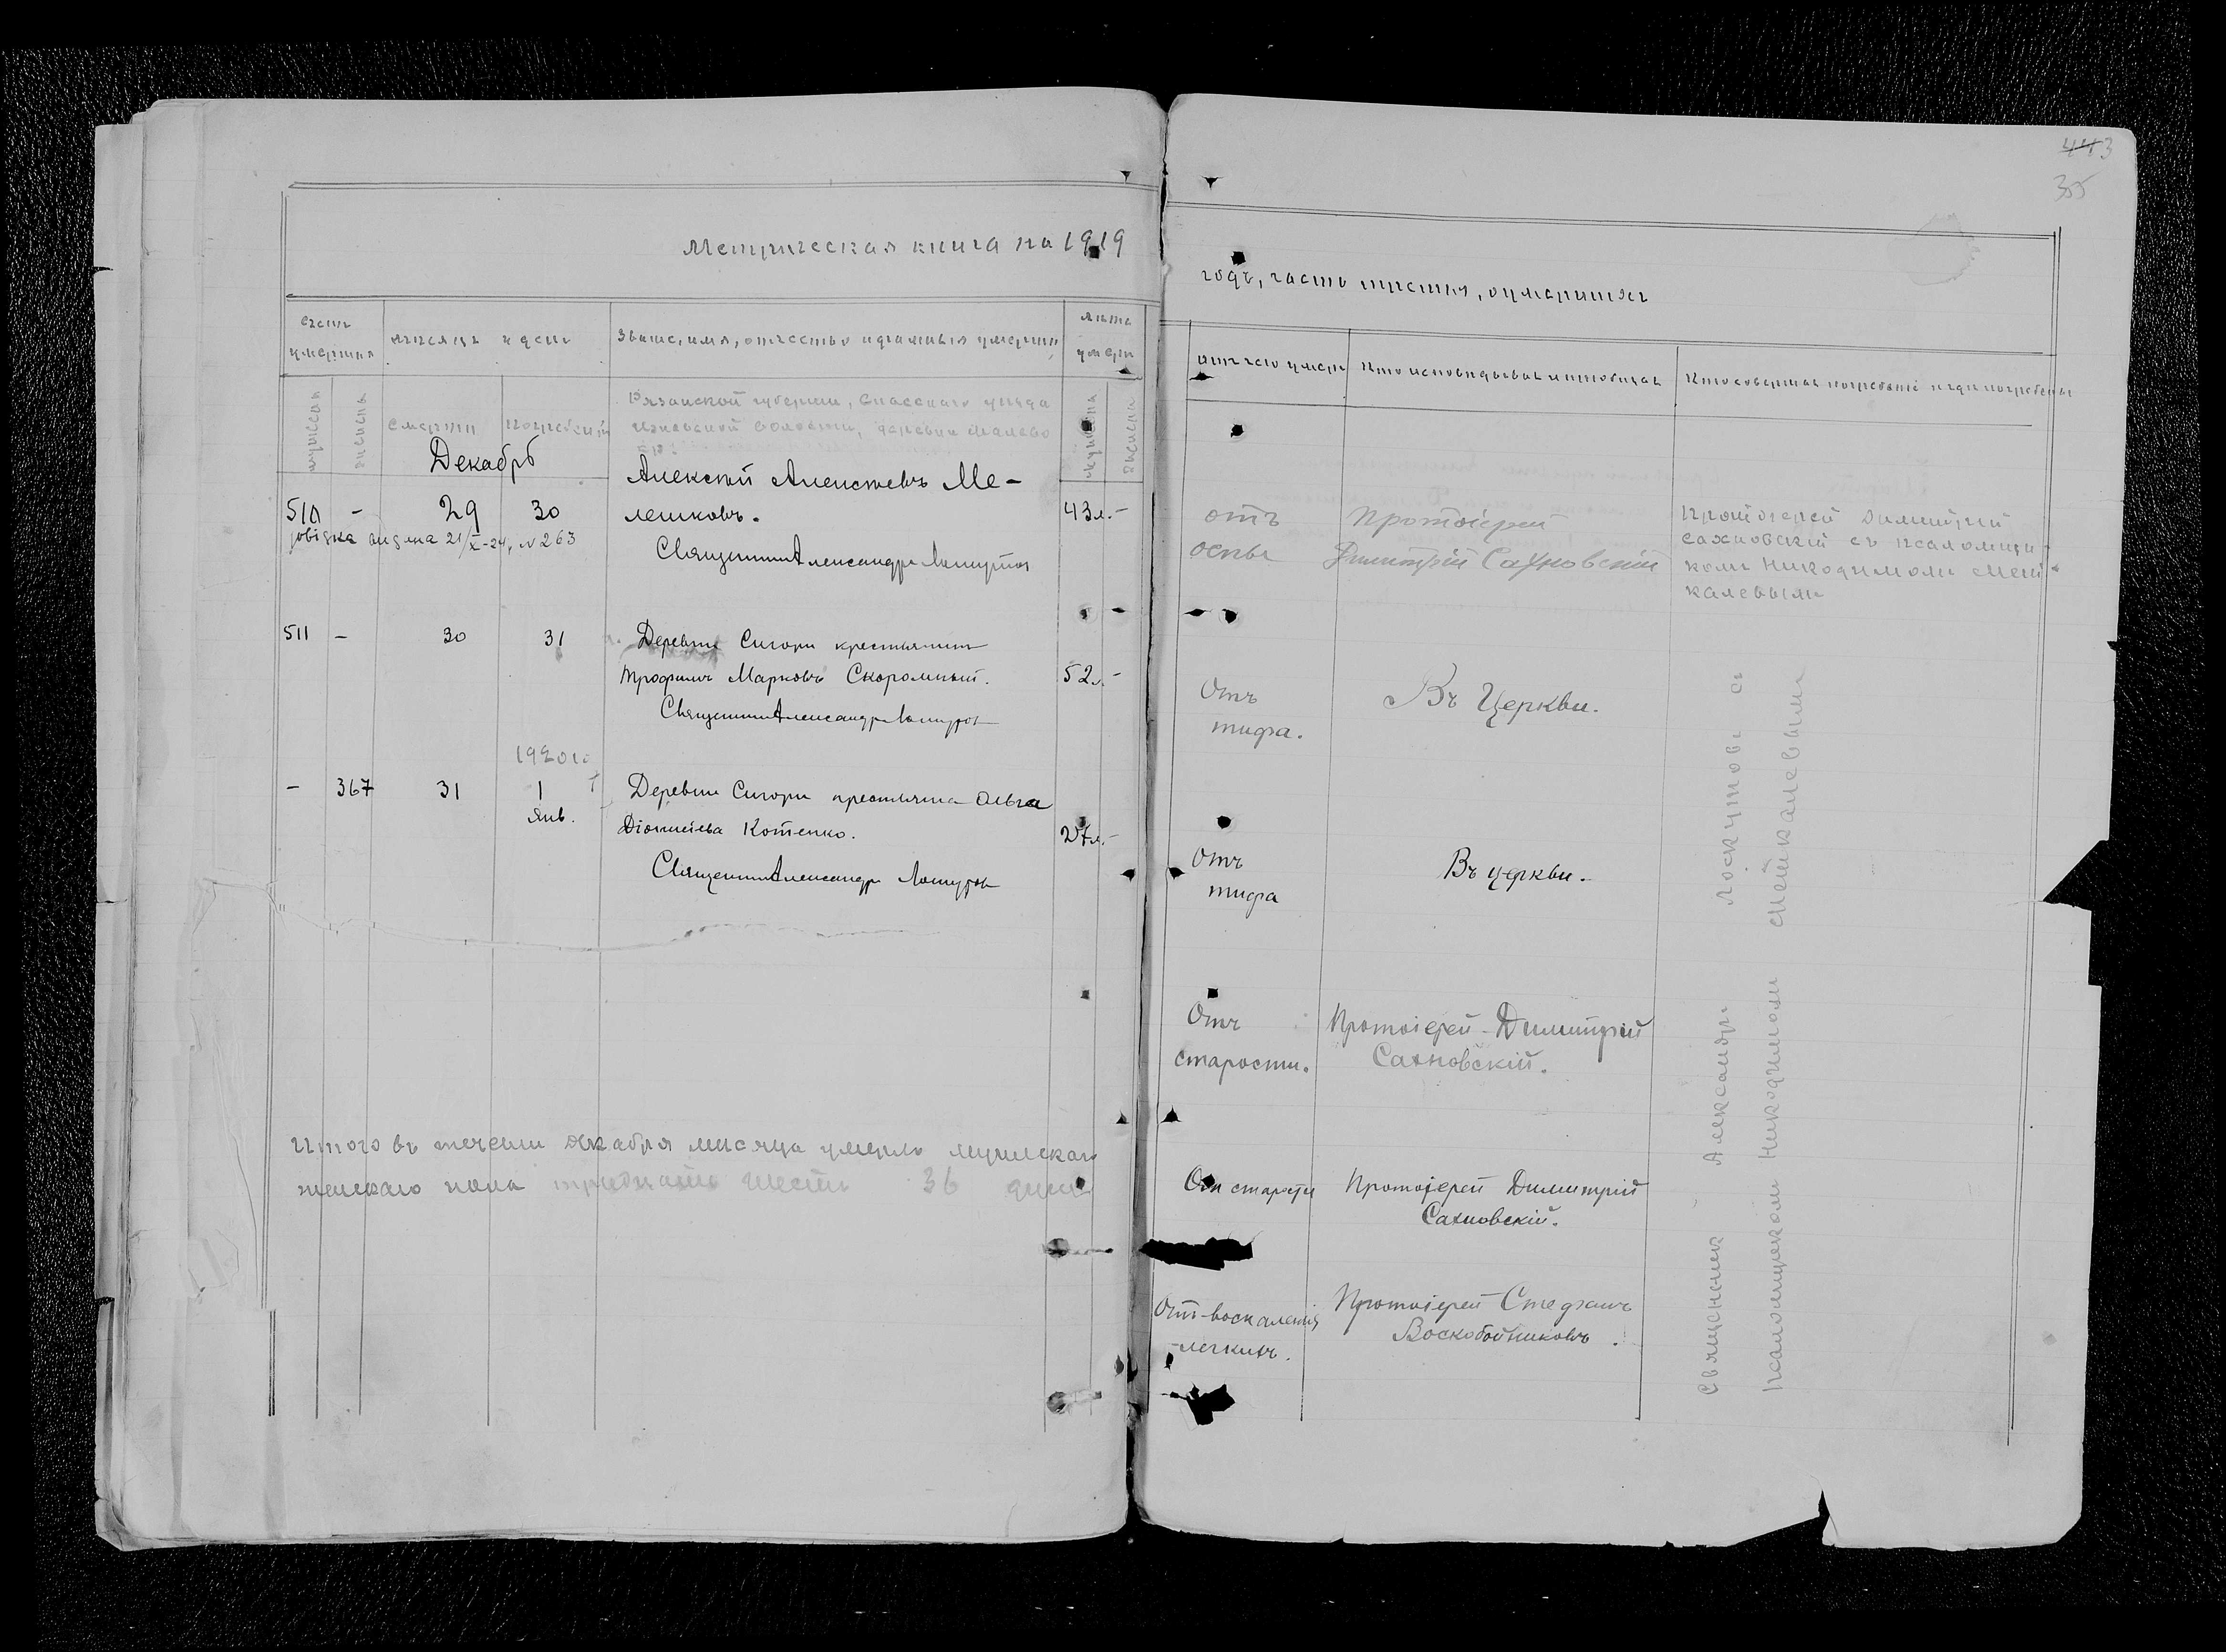 443
35
Метрическая книга на 1919
годъ, часть третья, о умершихъ
Счетъ умершихъ
мѣсяцъ и день
Званіе, имя, отчество и фамилія умершихъ
лѣта умерш
отъ чего умеръ
Кто исповѣдывалъ и пріобщалъ
Кто совершалъ погребеніе и гдѣ погребены
мужеска
женска
смерти
погребенія
мужеска
женска
Декабрь
Рязанской губерніи, Спасскаго уѣзда
волости, деревни
510 - 29 30
Алексѣй Алексѣевъ Ме-
лешковъ.
43 л. -
видана 21/X-24, N 263
Священникъ Александръ
отъ
оспы
Протоіерей
Димитрій Сахновскій
Протоіерей Димитрій
Сахновскій съ псаломщи-
комъ Никодимомъ Мей-
калевымъ
511 - 30 31
Деревни крестьянинъ
Трофимъ Марковъ Скоромный.
52 л. -
Священникъ Александръ
Отъ
тифа.
Въ Церкви.
1920 г.
- 367 31 1
Янв.
Деревни крестьянка Ольга
Діонисіева Котенко.
27 л. -
Священникъ Александръ
Отъ
тифа
Въ церкви.
Отъ
старости.
Протоіерей Димитрій
Сахновскій.
Итого въ теченіи декабря мѣсяца умерло мужескаго
женскаго пола тридцать шесть 36 душъ
Отъ старости
Протоіерей Димитрій
Сахновскій.
Отъ воспаленія
легкихъ.
Протоіерей Стефанъ
Воскобойниковъ.
Священникъ Александръ Локутовъ съ
псаломщикомъ Никодимомъ Мейкалевымъ